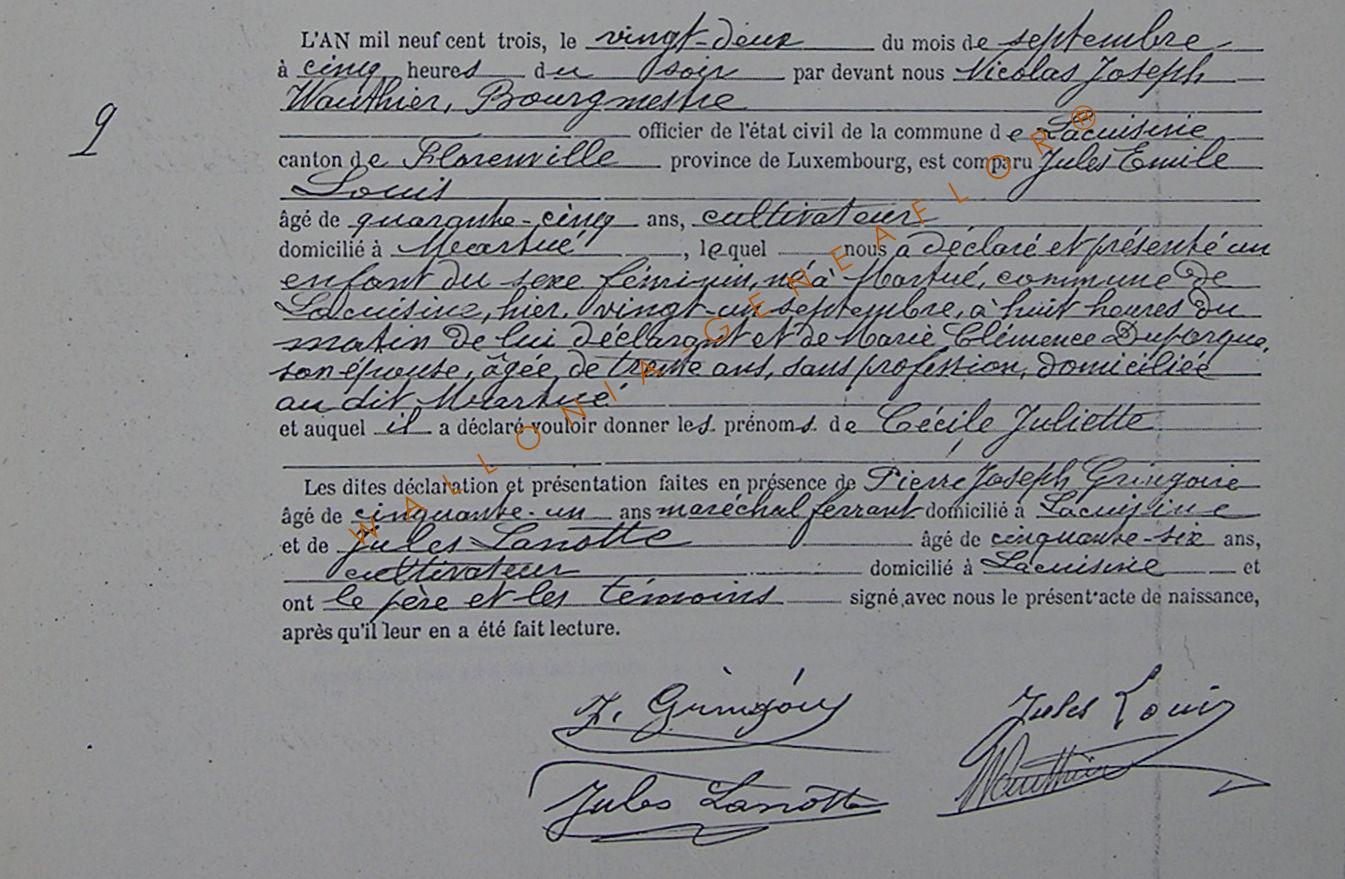 L'AN mil neuf cent trois, le vingt-deux du mois de septembre
à cinq heures du soir par devant nous Nicolas Joseph
Wauthier, Bourgmestre
9
officier de l'état civil de la commune de Lacuisine
canton de Florenville province de Luxembourg, est comparu Jules Emile
Louis
âgé de quarante-cinq ans, cultivateur
domicilié à Martué, lequel nous a déclaré et présenté un
enfant du sexe féminin, né à Martué, commune de
Lacuisine, hier, vingt-un septembre, à huit heures du
matin de lui déclarant et de Marie Clémence
son épouse, âgée de trente ans, sans profession, domiciliée
au dit Martué
et auquel il a déclaré vouloir donner les prénoms de Cécile Juliette
Les dites déclaration et présentation faites en présence de Pierre Joseph Gringoire
âgé de cinquante-un ans maréchal ferrant domicilié à Lacuisine
et de Jules Lanotte âgé de cinquante-six ans,
cultivateur domicilié à Lacuisine et
ont le père et les témoins signé avec nous le présent acte de naissance,
après qu'il leur en a été fait lecture.
Jules Louis
Wauthier
Jules Lanotte
WALLONIA-GENEAFLOR®